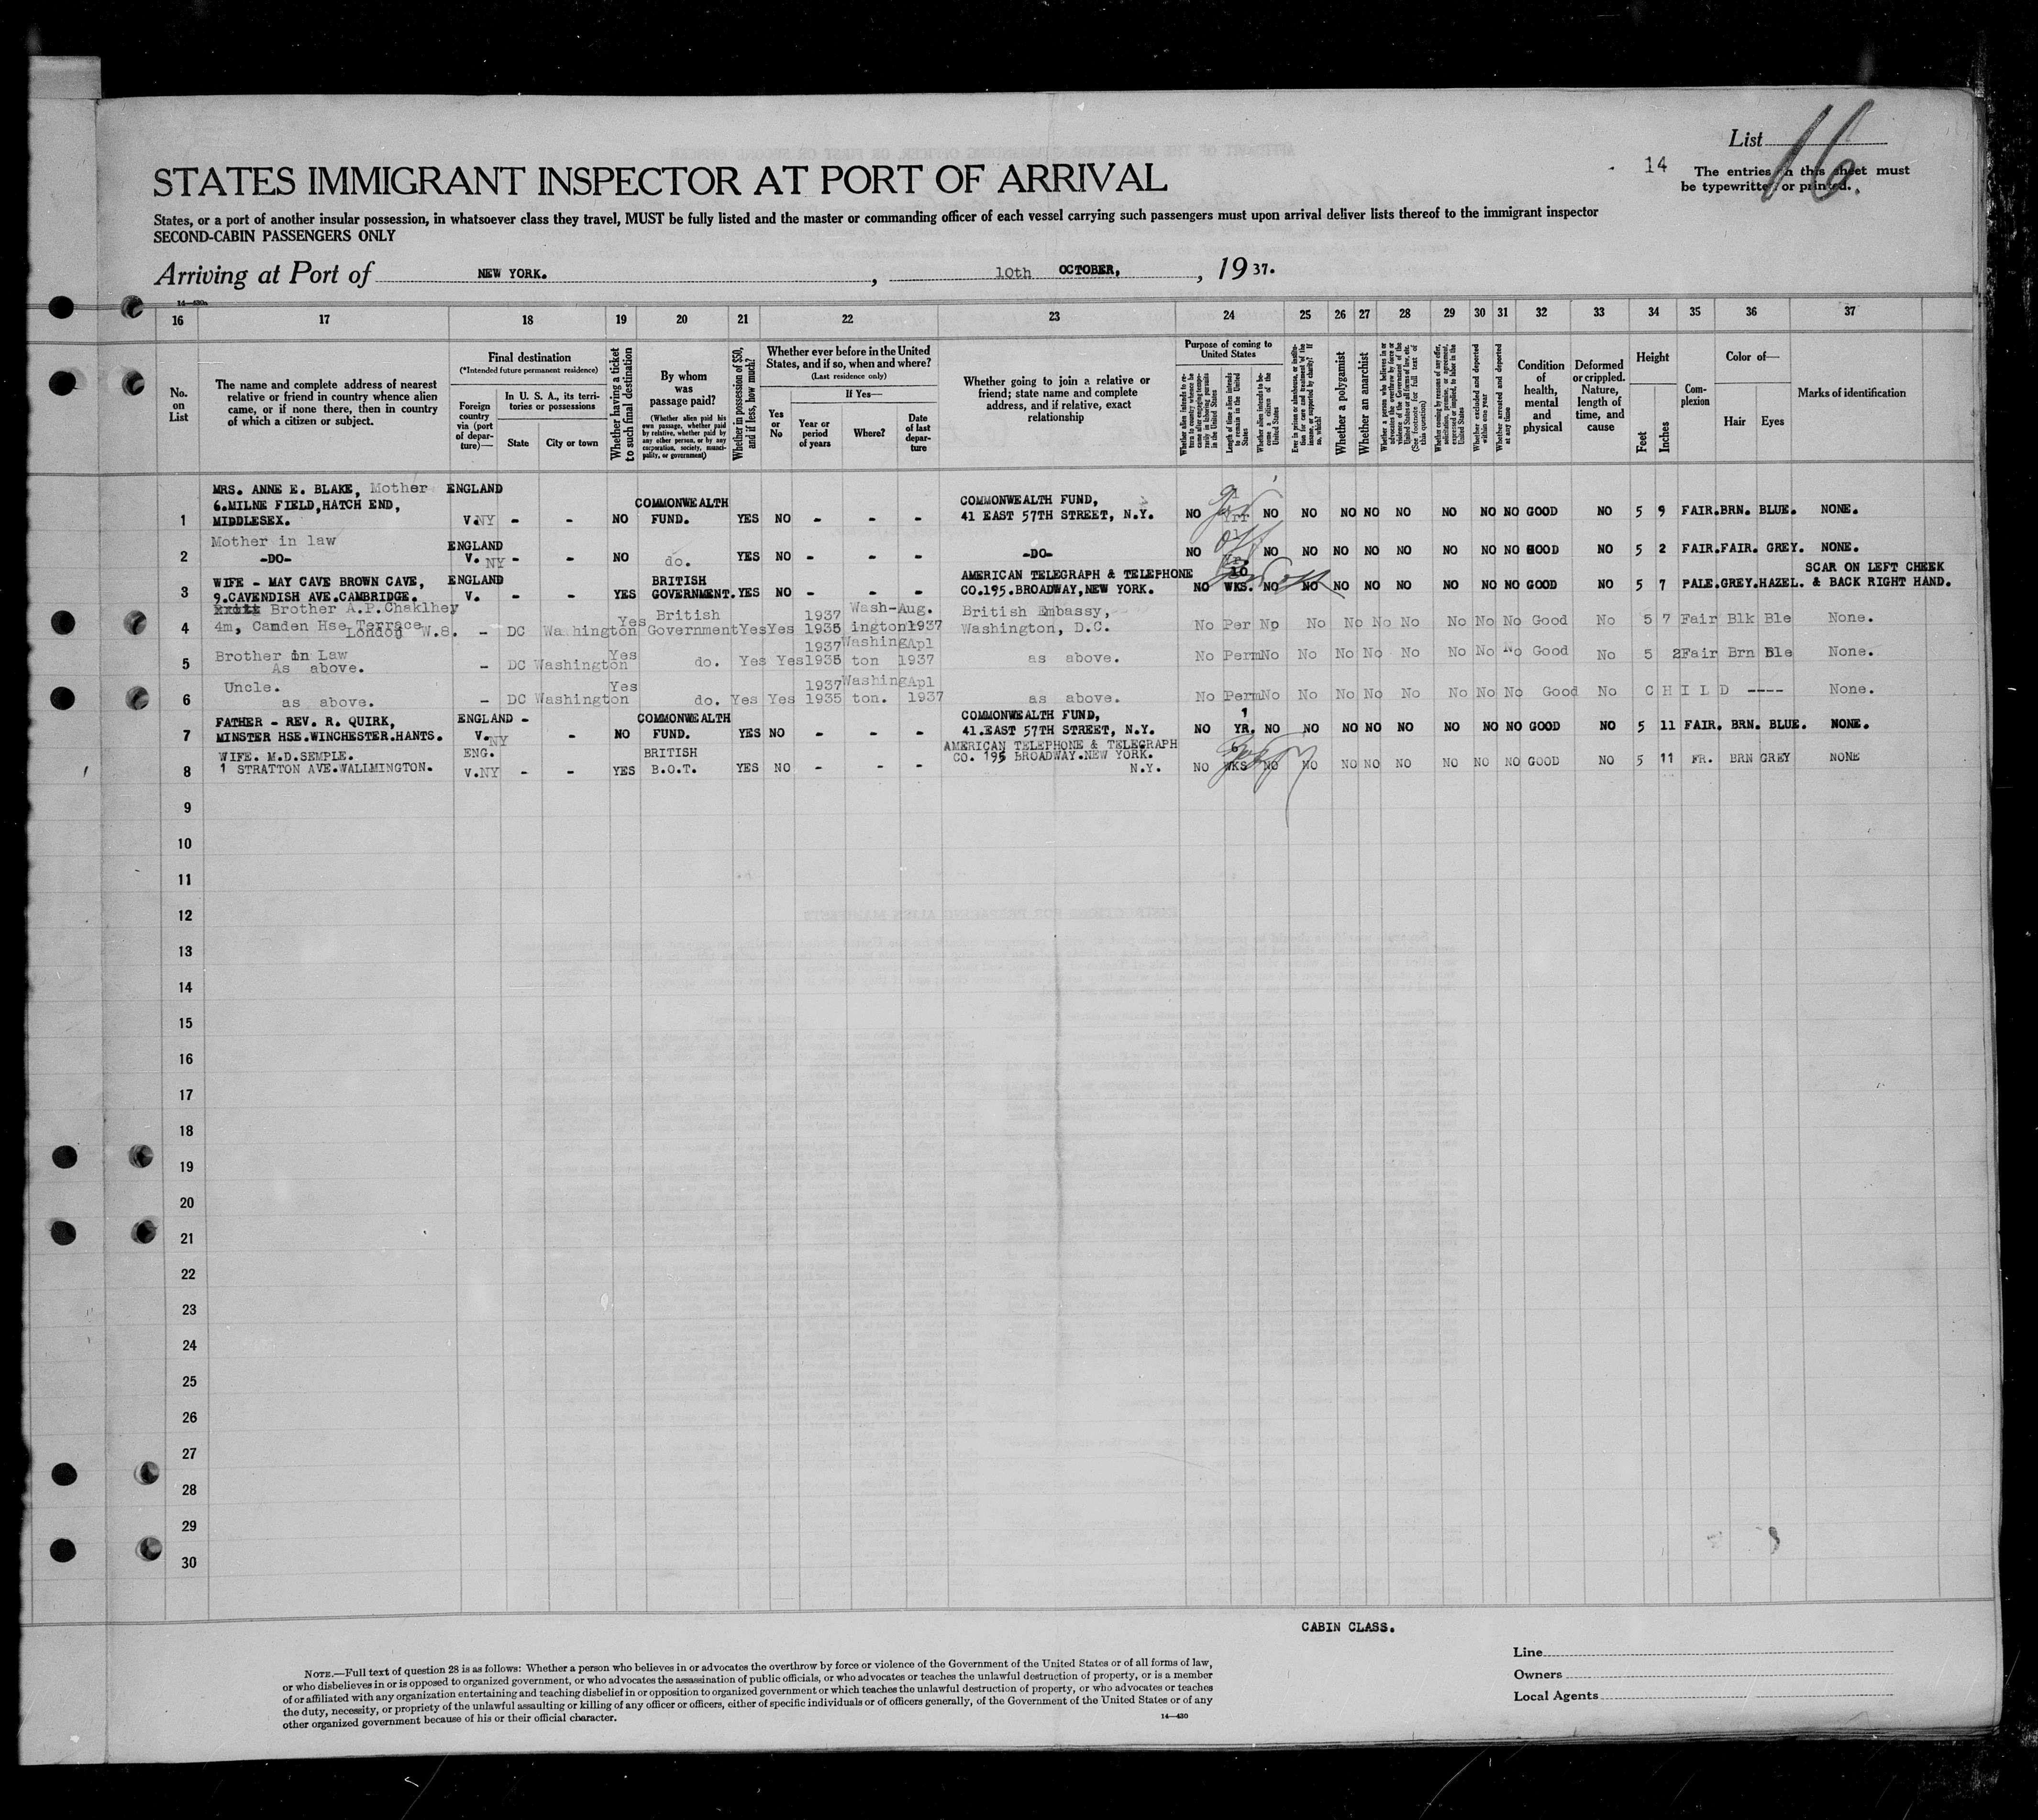 List 16
14
The entries on this sheet must
be typewritten or printed.
STATES IMMIGRANT INSPECTOR AT PORT OF ARRIVAL
States, or a port of another insular possession, in whatsoever class they travel, MUST be fully listed and the master or commanding officer of each vessel carrying such passengers must upon arrival deliver lists thereof to the immigrant inspector
SECOND-CABIN PASSENGERS ONLY
Arriving at Port of NEW YORK. , 10th OCTOBER, , 19 37.
14—430a
16 17 18 19 20 21 22 23 24 25 26 27 28 29 30 31 32 33 34 35 36 37
No. on List
The name and complete address of nearest
relative or friend in country whence alien
came, or if none there, then in country
of which a citizen or subject.
Final destination
(*Intended future permanent residence)
Foreign country via (port of departure)—
In U. S. A., its territories or possessions
State
City or town
Whether having a ticket to such final destination
By whom was passage paid?
(Whether alien paid his own passage, whether paid by relative, whether paid by any other person, or by any corporation, society, municipality, or government)
Whether in possession of $50, and if less, how much?
Whether ever before in the United States, and if so, when and where?
(Last residence only)
Yes or No
If Yes—
Year or period of years
Where?
Date of last departure
Whether going to join a relative or
friend; state name and complete
address, and if relative, exact
relationship
Purpose of coming to United States
Whether alien intends to return to country whence he came after engaging temporarily in laboring pursuits in the United States
Length of time alien intends to remain in the United States
Whether alien intends to become a citizen of the United States
Ever in prison or almshouse, or institution for care and treatment of the insane, or supported by charity? If so, which?
Whether a polygamist
Whether an anarchist
Whether a person who believes in or advocates the overthrow by force or violence of the Government of the United States or all forms of law, etc. (See footnote for full text of this question)
Whether coming by reasons of any offer, solicitation, promise, or agreement, expressed or implied, to labor in the United States
Whether excluded and deported within one year
Whether arrested and deported at any time
Condition of health, mental and physical
Deformed or crippled. Nature, length of time, and cause
Height
Feet
Inches
Complexion
Color of—
Hair
Eyes
Marks of identification
MRS. ANNE E. BLAKE, Mother ENGLAND
6.MILNE FIELD,HATCH END, COMMONWEALTH COMMONWEALTH FUND,
1 MIDDLESEX. V.NY - - NO FUND. YES NO - - - 41 EAST 57TH STREET, N.Y. NO NO NO NO NO NO NO NO NO GOOD NO 5 9 FAIR. BRN. BLUE. NONE.
Mother in law ENGLAND
2 -DO- V. NY - - NO do. YES NO - - - -DO- NO NO NO NO NO NO NO NO NO GOOD NO 5 2 FAIR. FAIR. GREY. NONE.
WIFE - MAY CAVE BROWN CAVE, ENGLAND BRITISH AMERICAN TELEGRAPH & TELEPHONE 10 SCAR ON LEFT CHEEK
3 9.CAVENDISH AVE.CAMBRIDGE. V. - - YES GOVERNMENT. YES NO - - - CO.195.BROADWAY,NEW YORK. NO WKS. NO NO NO NO NO NO NO NO GOOD NO 5 7 PALE. GREY. HAZEL. & BACK RIGHT HAND.
Brother A.P.Chaklhey Yes British 1937 Wash- Aug. British Embassy,
4 4m, Camden Hse Terrace London W.8. - DC Wa hington Government Yes Yes 1935 ington 1937 Washington, D.C. No Per No No No No No No No No Good No 5 7 Fair Blk Ble None.
Brother in Law Yes 1937 Washing Apl
5 As above. - DC Washington do. Yes Yes 1935 ton 1937 as above. No Perm No No No No No No No No Good No 5 2 Fair Brn Ble None.
Uncle. Yes 1937 Washing Apl
6 as above. - DC Washington do. Yes Yes 1935 ton. 1937 as above. No Perm No No No No No No No No Good No C H I L D ---- None.
FATHER - REV. R. QUIRK, ENGLAND - COMMONWEALTH COMMONWEALTH FUND, 1
7 MINSTER HSE.WINCHESTER.HANTS. V.NY - NO FUND. YES NO - - - 41.EAST 57TH STREET, N.Y. NO YR. NO NO NO NO NO NO NO NO GOOD NO 5 11 FAIR. BRN. BLUE. NONE.
WIFE. M.D.SEMPLE. ENG. BRITISH AMERICAN TELEPHONE & TELEGRAPH
8 1 STRATTON AVE.WALLMINGTON. V.NY - - YES B.O.T. YES NO - - - CO. 195 BROADWAY.NEW YORK. N.Y. NO 6 WKS NO NO NO NO NO NO NO NO GOOD NO 5 11 FR. BRN GREY NONE
9
10
11
12
13
14
15
16
17
18
19
20
21
22
23
24
25
26
27
28
29
30
CABIN CLASS.
Line
Owners
Local Agents
NOTE.—Full text of question 28 is as follows: Whether a person who believes in or advocates the overthrow by force or violence of the Government of the United States or of all forms of law,
or who disbelieves in or is opposed to organized government, or who advocates the assassination of public officials, or who advocates or teaches the unlawful destruction of property, or is a member
of or affiliated with any organization entertaining and teaching disbelief in or opposition to organized government or which teaches the unlawful destruction of property, or who advocates or teaches
the duty, necessity, or propriety of the unlawful assaulting or killing of any officer or officers, either of specific individuals or of officers generally, of the Government of the United States or of any
other organized government because of his or their official character.
14—430